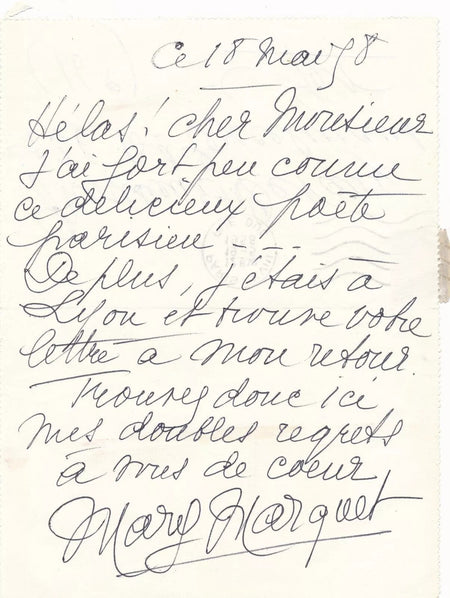 Ce 18 Mai 58
Hélas ! cher Monsieur
J'ai fort peu connu
ce délicieux poète
parisien ...
De plus, j'étais à
Lyon et trouve votre
lettre à mon retour.
Trouvez donc ici
mes doubles regrets
à vous de coeur,
Mary Marquet